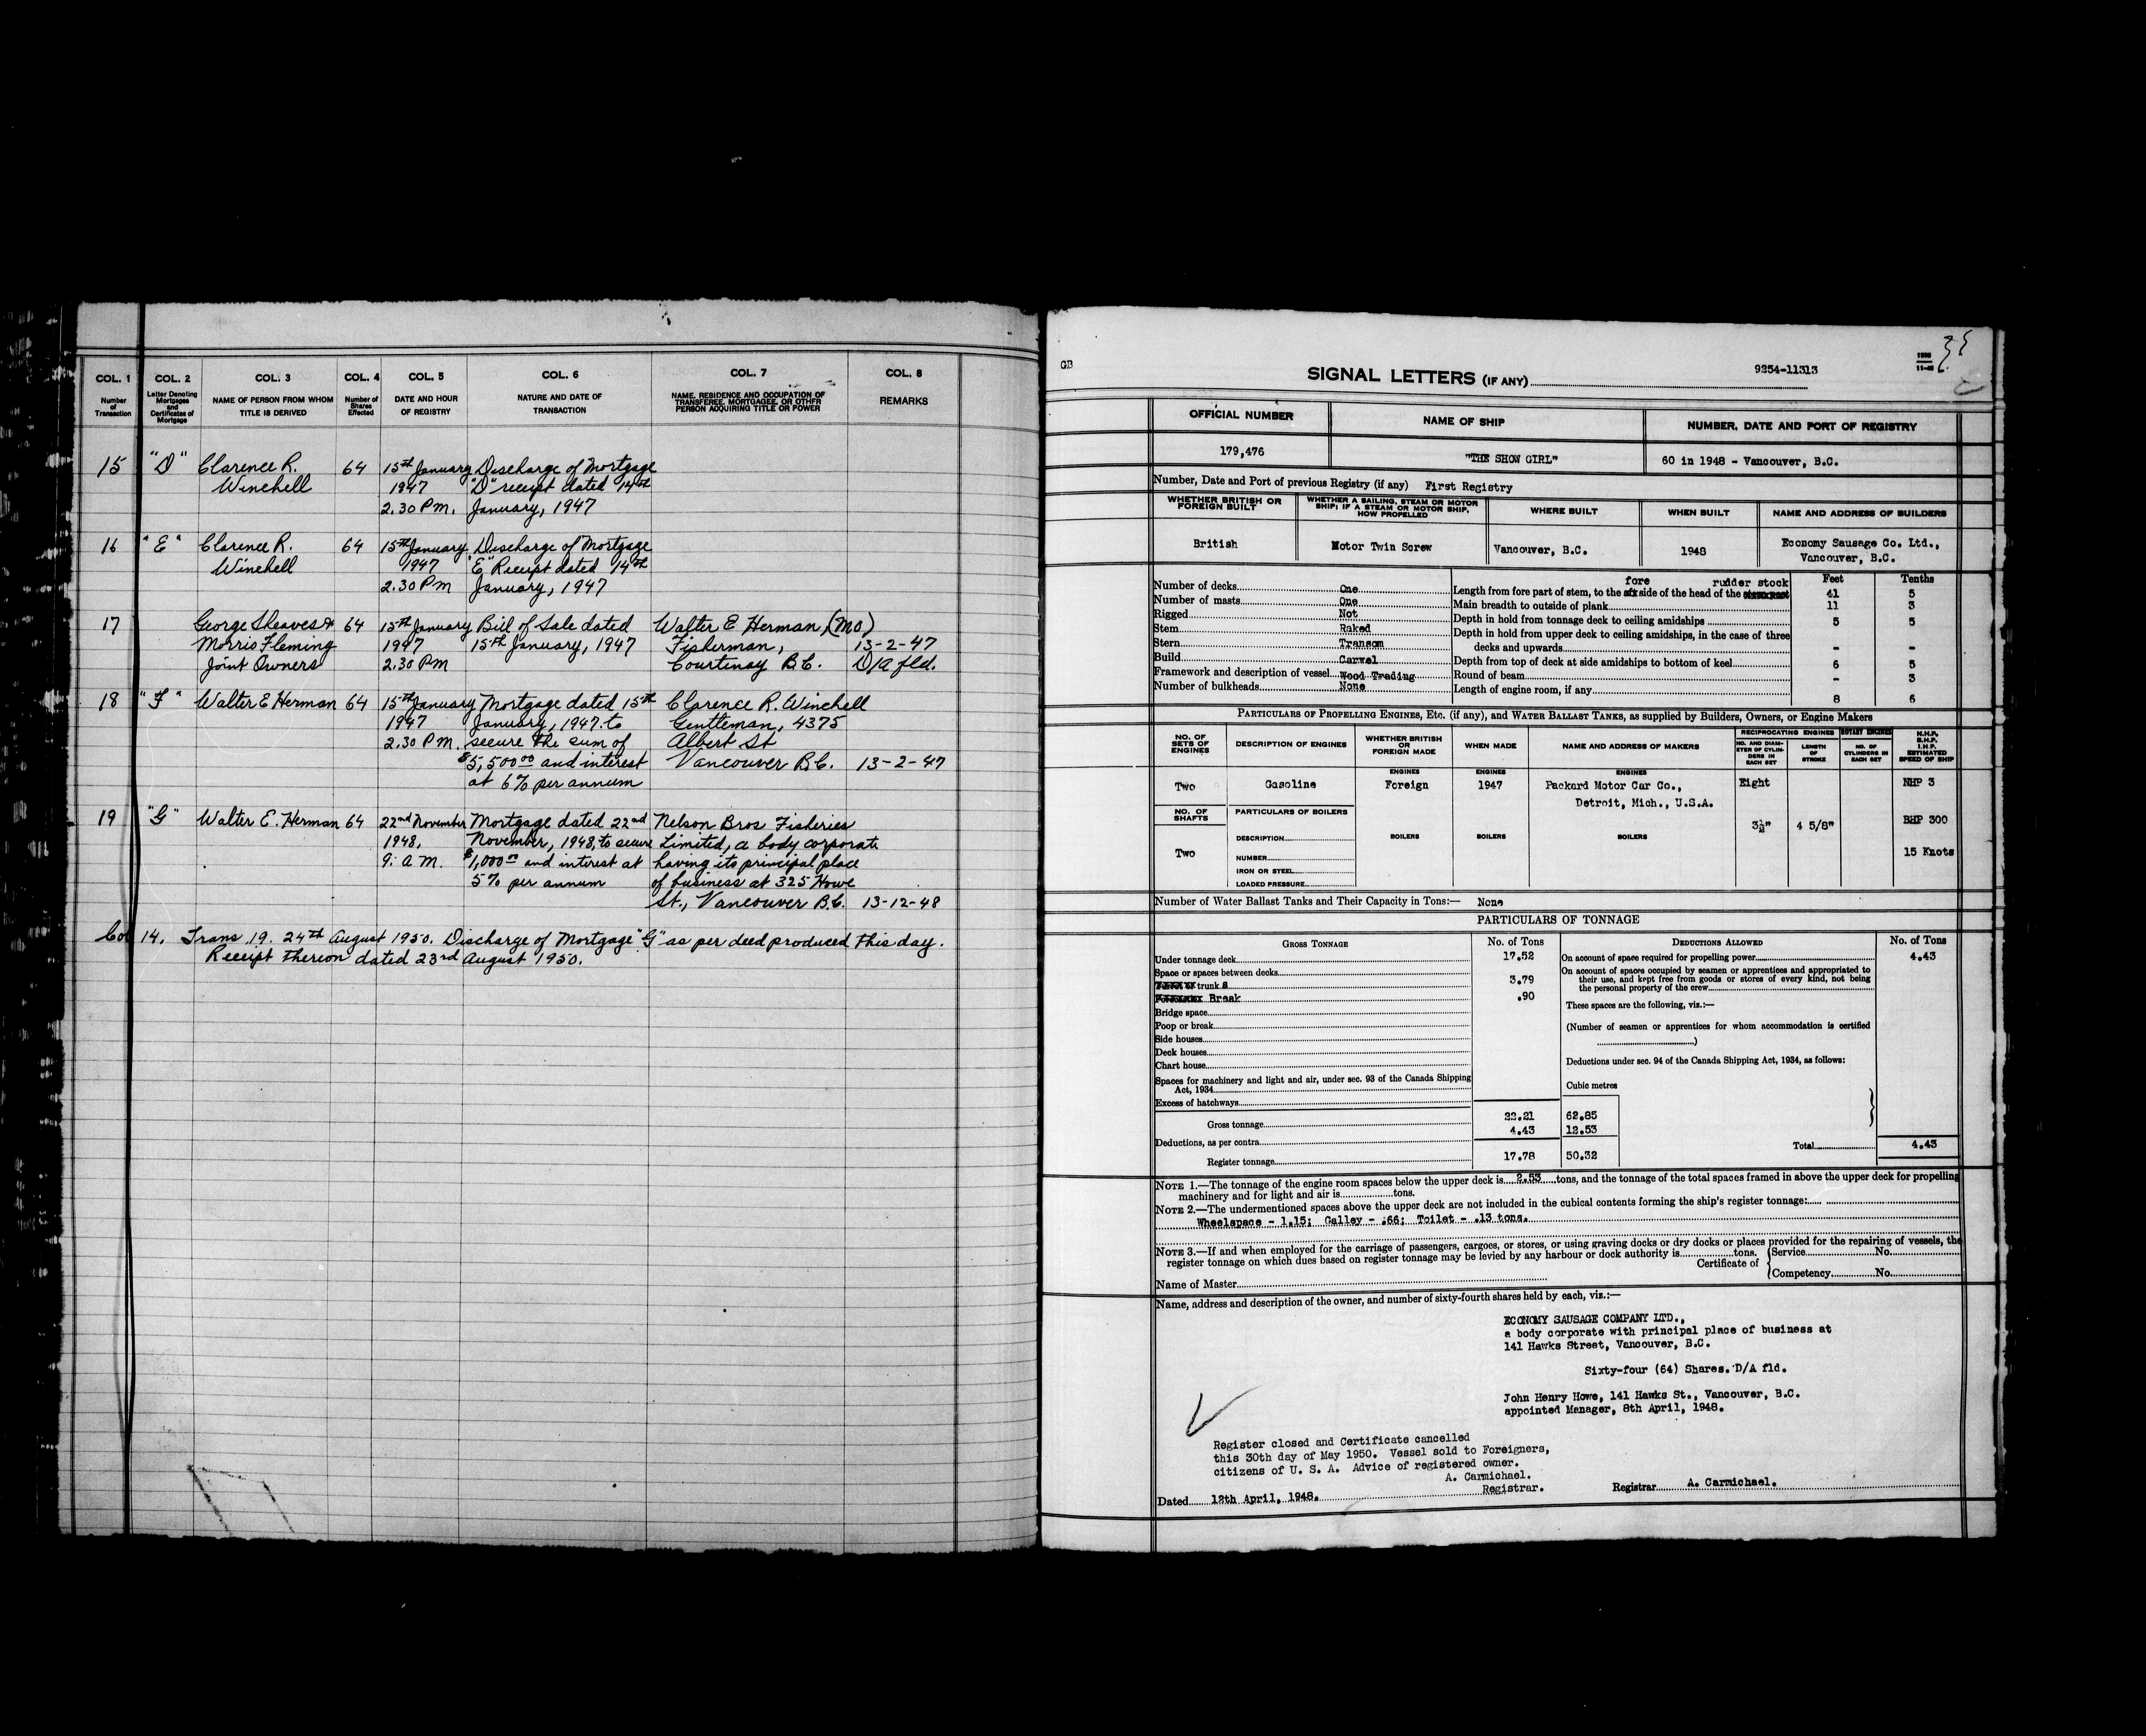 COL. 1 COL. 2 COL. 3 COL. 4 COL. 5 COL. 6 COL. 7 COL. 8
Number of Transaction
Letter Denoting Mortgages and Certificates of Mortgage
NAME OF PERSON FROM WHOM TITLE IS DERIVED
Number of Shares Effected
DATE AND HOUR OF REGISTRY
NATURE AND DATE OF TRANSACTION
NAME, RESIDENCE AND OCCUPATION OF TRANSFEREE, MORTGAGEE, OR OTHER PERSON ACQUIRING TITLE OR POWER
REMARKS
15 "D" Clarence R. 64 15th January Discharge of Mortgage
Winchell 1947 "D" receipt dated 14th
2.30 P.M. January, 1947
16 "E" Clarence R. 64 15th January Discharge of Mortgage
Winchell 1947 "E" Receipt dated 14th
2.30 P.M January, 1947
17 George Sheaves & 64 15th January Bill of Sale dated Walter E Herman, (MO)
Morris Fleming 1947 15th January, 1947 Fisherman, 13-2-47
Joint Owners 2.30 PM Courtenay B.C. D/A fld.
18 "F" Walter E Herman 64 15th January Mortgage dated 15th Clarence R. Winchell
1947 January, 1947 to Gentleman, 4375
2.30 P.M. secure the sum of Albert St
$5,500.00 and interest Vancouver B.C. 13-2-47
at 6% per annum
19 "G" Walter E. Herman 64 22nd November Mortgage dated 22nd Nelson Bros Fisheries
1948, November, 1948, to secure Limited, a body corporate
9: A.M. $1,000.00 and interest at having its principal place
5% per annum of business at 325 Howe
St., Vancouver B.C. 13-12-48
Col 14. Trans 19. 24th August 1950. Discharge of Mortgage "G" as per deed produced this day.
Receipt thereon dated 23rd August 1950.
GB
SIGNAL LETTERS (IF ANY) 9254-11313
OFFICIAL NUMBER NAME OF SHIP NUMBER, DATE AND PORT OF REGISTRY
179,476 "THE SHOW GIRL" 60 in 1948 - Vancouver, B.C.
Number, Date and Port of previous Registry (if any) First Registry
WHETHER BRITISH OR FOREIGN BUILT
WHETHER A SAILING, STEAM OR MOTOR SHIP; IF A STEAM OR MOTOR SHIP, HOW PROPELLED
WHERE BUILT WHEN BUILT NAME AND ADDRESS OF BUILDERS
British Motor Twin Screw Vancouver, B.C. 1948 Economy Sausage Co. Ltd.,
Vancouver, B.C.
Number of decks One
Number of masts One
Rigged Not
Stem Raked
Stern Transom
Build Carvel
Framework and description of vessel Wood Trading
Number of bulkheads None
fore rudder stock Feet Tenths
Length from fore part of stem, to the aft side of the head of the 41 5
Main breadth to outside of plank 11 3
Depth in hold from tonnage deck to ceiling amidships 5 5
Depth in hold from upper deck to ceiling amidships, in the case of three
decks and upwards - -
Depth from top of deck at side amidships to bottom of keel 6 5
Round of beam - 3
Length of engine room, if any 8 6
PARTICULARS OF PROPELLING ENGINES, ETC. (if any), and WATER BALLAST TANKS, as supplied by Builders, Owners, or Engine Makers
NO. OF SETS OF ENGINES
DESCRIPTION OF ENGINES
WHETHER BRITISH OR FOREIGN MADE
WHEN MADE
NAME AND ADDRESS OF MAKERS
RECIPROCATING ENGINES ROTARY ENGINES
NO. AND DIAMETER OF CYLINDERS IN EACH SET
LENGTH OF STROKE
NO. OF CYLINDERS IN EACH SET
N.H.P. B.H.P. I.H.P. ESTIMATED SPEED OF SHIP
ENGINES ENGINES ENGINES
Two Gasoline Foreign 1947 Packard Motor Car Co., Eight NHP 3
Detroit, Mich., U.S.A.
NO. OF SHAFTS PARTICULARS OF BOILERS
3½" 4 5/8" BHP 300
DESCRIPTION BOILERS BOILERS BOILERS
Two 15 Knots
NUMBER
IRON OR STEEL
LOADED PRESSURE
Number of Water Ballast Tanks and Their Capacity in Tons:— None
PARTICULARS OF TONNAGE
GROSS TONNAGE No. of Tons DEDUCTIONS ALLOWED No. of Tons
Under tonnage deck 17.52 On account of space required for propelling power 4.43
Space or spaces between decks
trunk s 3.79
Break .90
Bridge space
Poop or break
Side houses
Deck houses
Chart house
Spaces for machinery and light and air, under sec. 93 of the Canada Shipping
Act, 1934
Excess of hatchways
On account of spaces occupied by seamen or apprentices and appropriated to
their use, and kept free from goods or stores of every kind, not being
the personal property of the crew
These spaces are the following, viz.:—
(Number of seamen or apprentices for whom accommodation is certified
)
Deductions under sec. 94 of the Canada Shipping Act, 1934, as follows:
Cubic metres
Gross tonnage 22.21 62.85
Deductions, as per contra 4.43 12.53
Total 4.43
Register tonnage 17.78 50.32
NOTE 1.—The tonnage of the engine room spaces below the upper deck is 2.53 tons, and the tonnage of the total spaces framed in above the upper deck for propelling
machinery and for light and air is tons.
NOTE 2.—The undermentioned spaces above the upper deck are not included in the cubical contents forming the ship's register tonnage:
Wheelspace - 1.15; Galley - .66; Toilet - .13 tons.
NOTE 3.—If and when employed for the carriage of passengers, cargoes, or stores, or using graving docks or dry docks or places provided for the repairing of vessels, the
register tonnage on which dues based on register tonnage may be levied by any harbour or dock authority is tons.
Certificate of Service No.
Competency No.
Name of Master
Name, address and description of the owner, and number of sixty-fourth shares held by each, viz.:—
ECONOMY SAUSAGE COMPANY LTD.,
a body corporate with principal place of business at
141 Hawks Street, Vancouver, B.C.
Sixty-four (64) Shares. D/A fld.
John Henry Howe, 141 Hawks St., Vancouver, B.C.
appointed Manager, 8th April, 1948.
Register closed and Certificate cancelled
this 30th day of May 1950. Vessel sold to Foreigners,
citizens of U. S. A. Advice of registered owner.
A. Carmichael.
Registrar.
Dated 12th April, 1948. Registrar A. Carmichael.